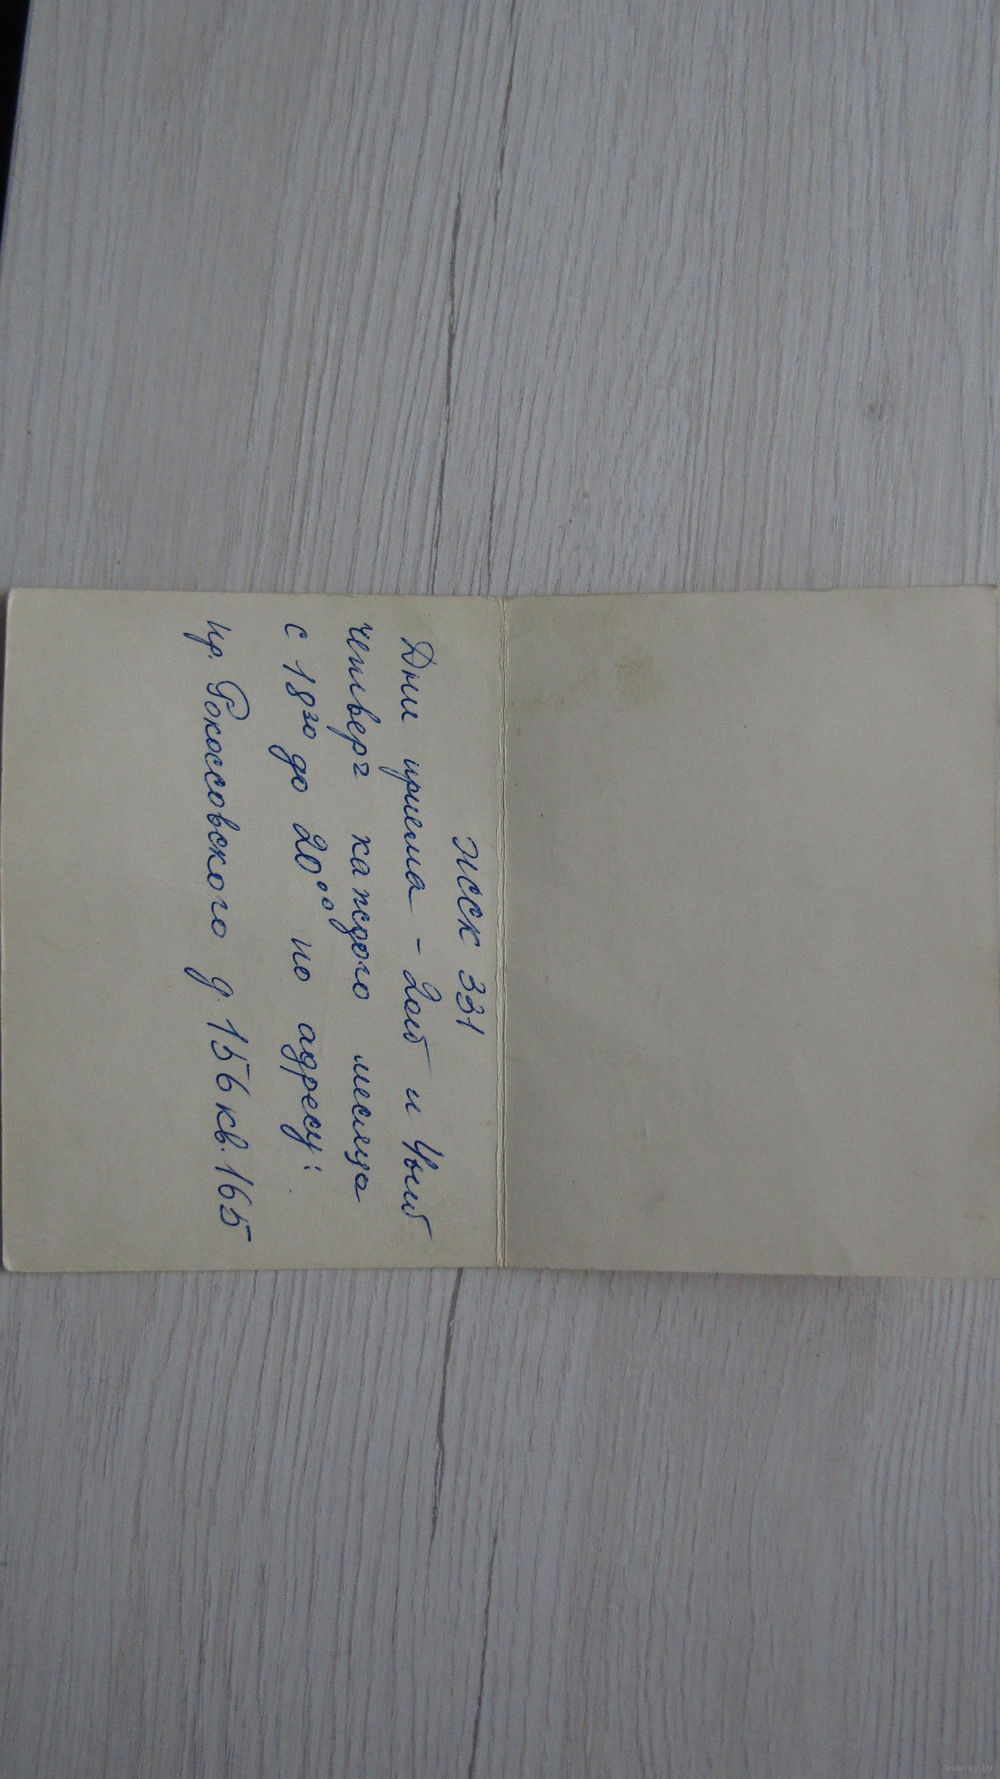 ЖССК 331
Дни приема - 2ой и 4ый
четверг каждого месяца
с 18³⁰ до 20⁰⁰ по адресу:
пр. Рокоссовского д. 156 кв. 165
www.ay.by